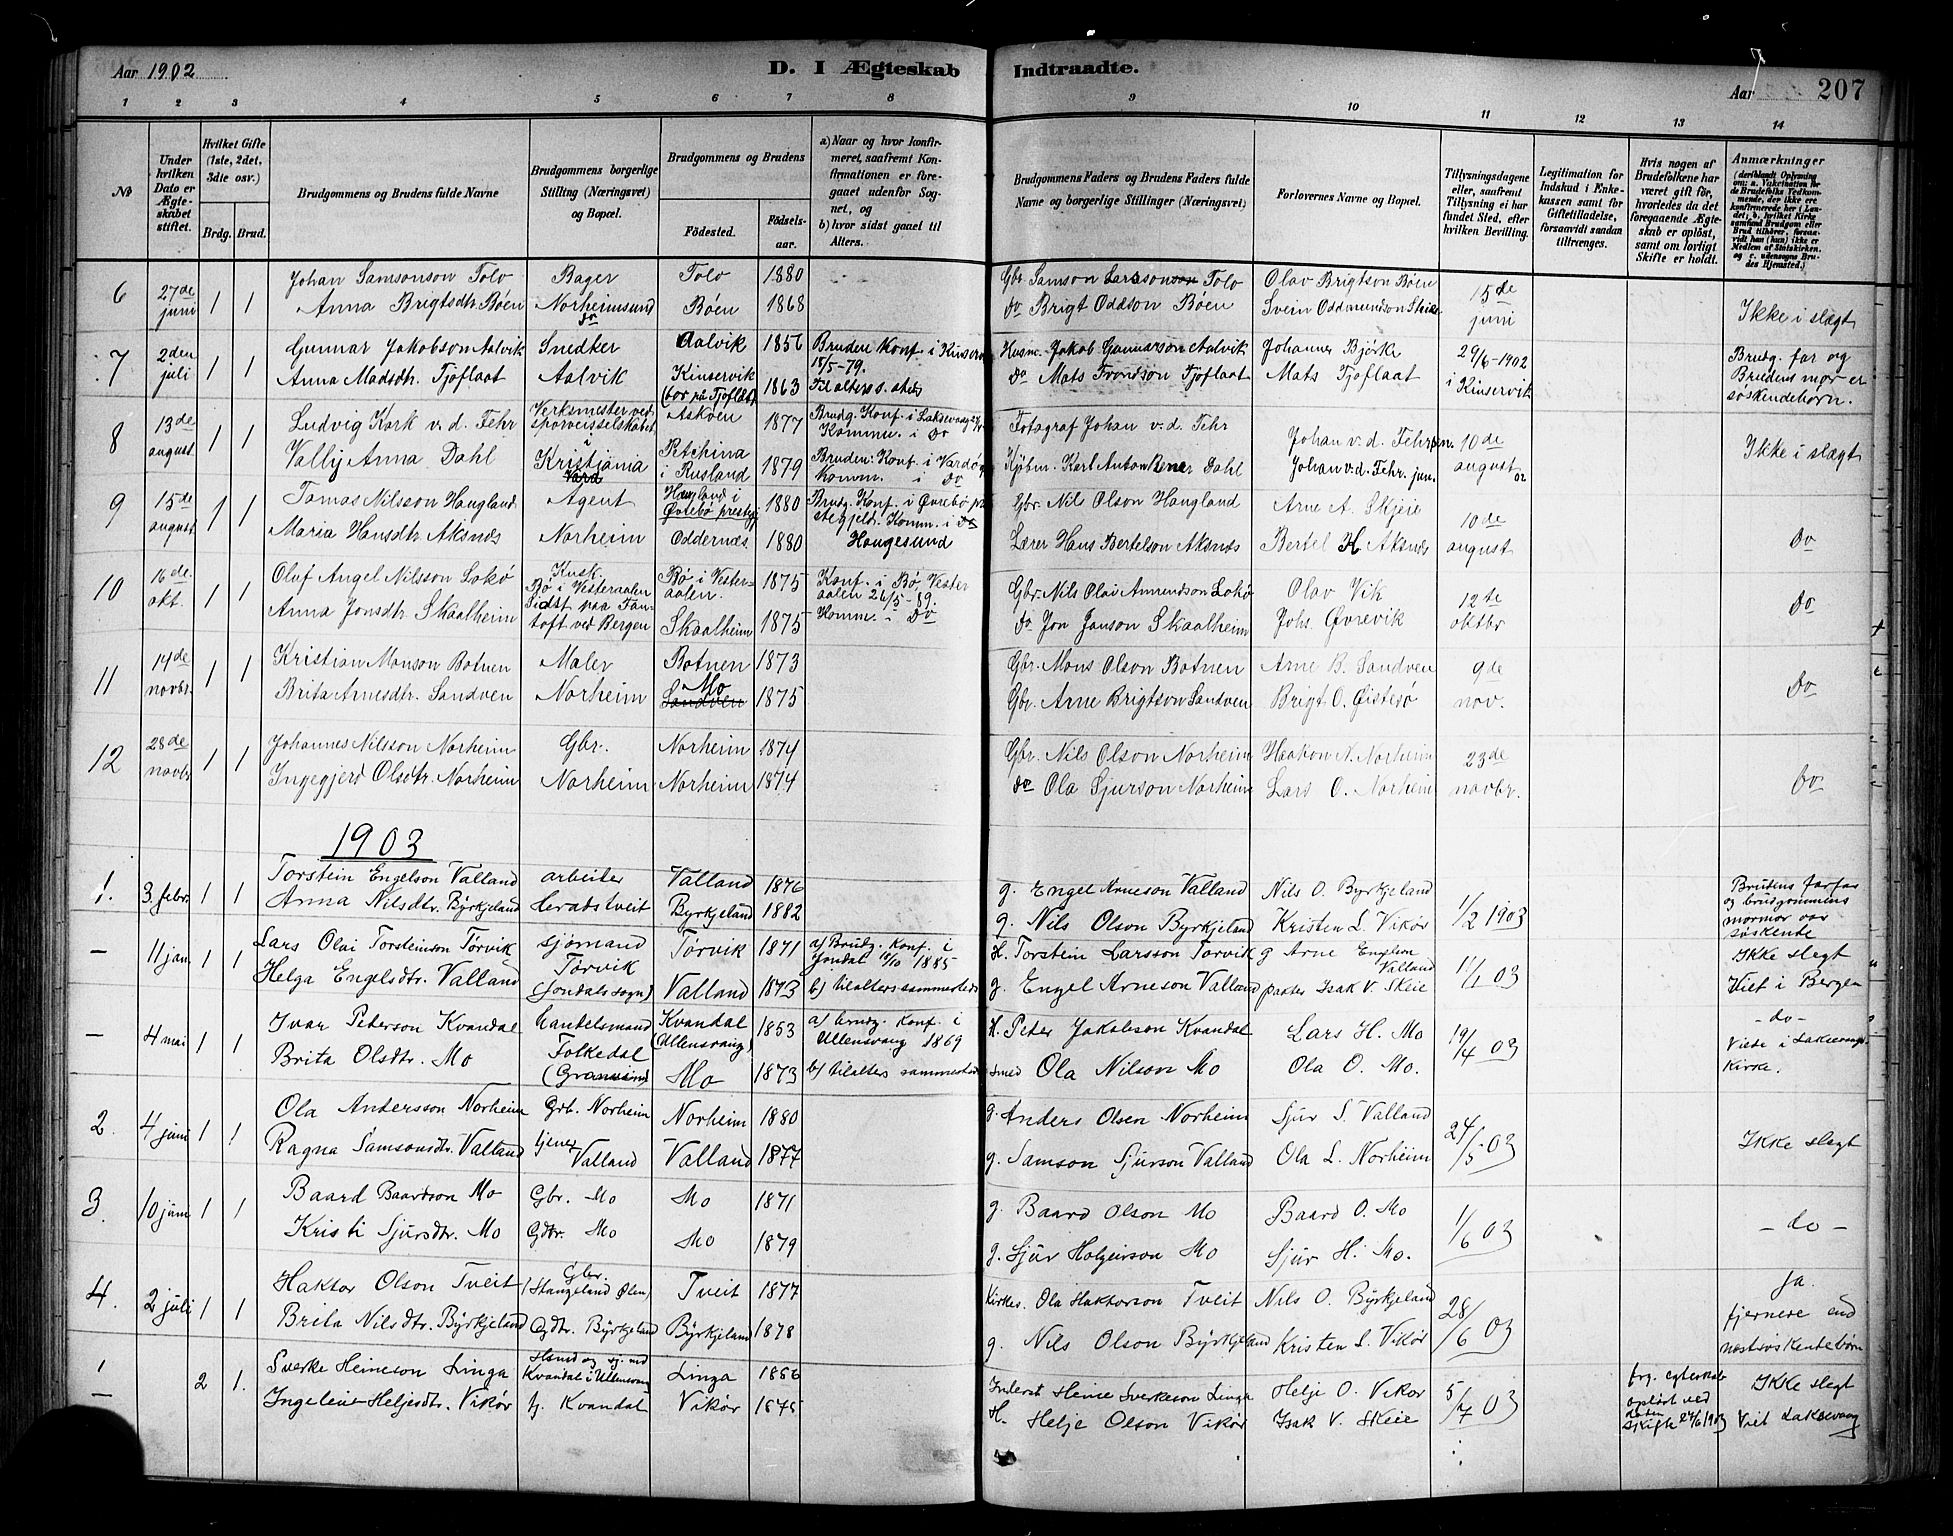 Aar 1902
D. I Ægteskab
Indtraadte.
Aar
207
1 2 3 4 5 6 7 8 9 10 11 12 13 14
№
Under hvilken Dato er Ægteskabet stiftet.
Hvilket Gifte (1ste, 2det, 3die osv.)
Brdg. Brud.
Brudgommens og Brudens fulde Navne
Brudgommens borgerlige Stilling (Næringsvei) og Bopæl.
Brudgommens og Brudens
Födested.
Födselsaar.
a) Naar og hvor konfirmeret, saafremt Konfirmationen er foregaaet udenfor Sognet, og
b) hvor sidst gaaet til Alters.
Brudgommens Faders og Brudens Faders fulde Navne og borgerlige Stillinger (Næringsvei)
Forlovernes Navne og Bopæl.
Tillysningsdagene eller, saafremt Tillysning ei har fundet Sted, efter hvilken Bevilling.
Legitimation for Indskud i Enkekassen samt for Giftetilladelse, forsaavidt saadan tiltrænges.
Hvis nogen af Brudefolkene har været gift før, hvorledes da det foregaaende Ægteskab er opløst, samt om lovligt Skifte er holdt.
Anmærkninger
(deriblandt Oplysning om: a. Vakcination for de Brudefolks Vedkommende, der ikke ere konfirmerede her i Landet; b. hvilket Kirkesamfund Brudgom eller Brud tilhører, forsaavidt han (hun) ikke er Medlem af Statskirken, og c. udensogns Brudes Hjemsted.)
6 27de juni 1 1 Johan Samsonson Tolo Bager Tolo 1880 Gbr Samson Larsson Tolo Olav Brigtson Böen 15de juni
Anna Brigtsdtr Böen Norheimsund do Böen 1868 do Brigt Oddson Böen Svein Oddmundson Ikke i slægt
7 2den juli 1 1 Gunnar Jakobson Aalvik Snedker Aalvik 1856 Bruden Konf. i Kinservik 18/5-79. Husm. Jakob Gunnarson Aalvik Johannes Bjørke 29/6-1902 i Kinservik Brudg. far og Brudens mor er søskendebørn.
Anna Madsdtr. Tjoflaat Aalvik Kinservik (bor på Tjoflåt) 1863 Til alters s. steds do Mats Trondson Tjoflaat Mats Tjoflaat
8 13de august 1 1 Ludvig Kork v. d. Fehr Verksmester ved sporveisselskabet i Askøen 1877 Brudg. Konf. i Laksevaag Komm. i do Fotograf Johan v. d. Fehr Johan v. d. Fehr sen. 10de august 02 Ikke i slægt
Vally Anna Dahl Kristiania Petchina i Rusland 1879 Bruden: Konf. i Vardø Komm. i do Kjøbm. Karl Anton Dahl Johan v. d. Fehr. jun.
9 15de august 1 1 Tomas Nilsson Haugland Agent Haugland i Øvrebø prestegj. 1880 Brudg. Konf. i Øvrebø prestegjeld. Komm. i Do Haugesund Gbr. Nils Olson Haugland Arne A. Skjeie 10de august
Maria Hansdtr Aksnes Norheim Oddernæs 1880 Lærer Hans Bertelson Aksnæs Bertel H Aksnæs Do
10 16de. okt. 1 1 Oluf Angel Nilsson Lokø Kusk. Bø i Vesteraalen Sidst paa Fantoft ved Bergen Bø i Vesteraalen. 1875 Konf. i Bø Vesteraalen 26/5-89. Komm. - Do Gbr. Nils Olai Amundson Lokø Olav Vik 12te oktbr
Anna Jonsdtr Skaalheim Skaalheim 1875 do Jon Janson Skaalheim Johs. Øvrevik Do
11 14de novbr. 1 1 Kristian Monson Botnen Maler Botnen 1873 Gbr. Mons Olson Botnen Arne B. Sandven 9de nov.
Brita Arnesdtr. Sandven Norheim Mo Sandven 1875 Gbr. Arne Brigtson Sandven Brigt O. Øistesø Do
12 28de novbr 1 1 Johannes Nilsson Norheim Gbr. Norheim 1874 Gbr. Nils Olson Norheim Haakon N. Norheim 23de novbr.
Ingegjerd Olsdtr. Norheim Norheim Norheim 1874 do Ola Sjurson Norheim Lars O. Norheim Do
1903
1. 3. febr. 1 1 Torstein Engelson Valland arbeider Valland 1876 g. Engel Arneson Valland Nils O. Byrkjeland 1/2 1903 Brudens farfar og brudgommens mormor var søskende
Anna Nilsdtr. Byrkjeland Heradstveit Byrkjeland 1882 g. Nils Olson Byrkjeland Kristen L. Vikør
— 11 jan. 1 1 Lars Olai Torsteinson Tørvik sjømand Tørvik 1871 a) Brudg. Konf. i Jondal 18/10 1885 H. Torstein Larsson Tørvik g Arne Engelson Valland 11/1 03 Ikke slegt
Helga Engelsdtr. Valland Tørvik (Jondals sogn) Valland 1873 b) tilalters sammesteds g. Engel Arneson Valland Isak V. Skeie Viet i Bergen
— 4 mai 1 1 Ivar Peterson Kvandal Handelsmand Kvandal (Ullensvang) 1853 a) brudg. Konf. i Ullensvang 1869 H. Peter Jakobson Kvandal Lars H. Mo 19/4 03 - do - Viede i Laksevaags Kirke.
Brita Olsdtr. Mo Folkedal (Granvin) Mo 1873 b) tilalters sammesteds smed Ola Nilson Mo Ola O. Mo.
2. 4 juni 1 1 Ola Andersson Norheim Grb. Norheim Norheim 1880 g. Anders Olsen Norheim Sjur S. Valland 24/5 03
Ragna Samsonsdtr. Valland tjener Valland Valland 1877 g. Samson Sjurson Valland Ola L. Norheim Ikke slegt
3. 10 juni 1 1 Baard Baardson Mo Gbr. Mo Mo 1871 g. Baard Olson Mo Baard O. Mo 1/6 03
Kristi Sjursdtr. Mo Gdtr. Mo Mo 1879 g. Sjur Holgeirson Mo Sjur H. Mo. - do -
4. 2 juli 1 1 Haktor Olson Tveit Gbr. (Stangeland Ølen) Tveit 1877 Kirkes. Ola Haktorson Tveit Nils O. Byrkjeland 28/6 03 ja. fjernere end næstsøskendebørn
Brita Nilsdtr. Byrkjeland Gdtr. Byrkjeland Byrkjeland 1878 g. Nils Olson Byrkjeland Kristen L. Vikør
1 — 2 1. Sverke Heineson Linga Kvandal i Ullensvang Linga 1856 Inderst Heine Sverkeson Linga Helje O. Vikør 5/7 03 frg. egteskab opløst ved døden Skifte 24/6 1903 Ikke slegt
Ingeleiv Heljesdtr. Vikør tj. Kvandal Vikør 1875 H. Helje Olson Vikør Isak V. Skeie Viet Laksevaag